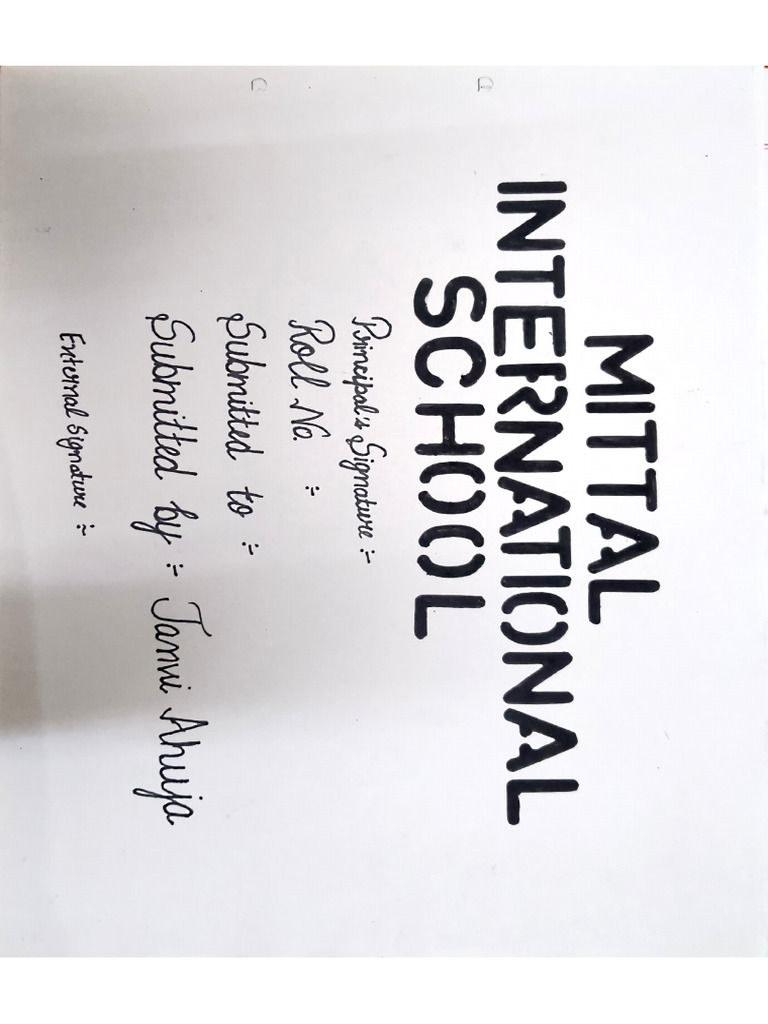 MITTAL
INTERNATIONAL
SCHOOL
Principal's Signature :-
Roll No. :-
Submitted to :-
Submitted by :- Tanvi Ahuja
External Signature :-